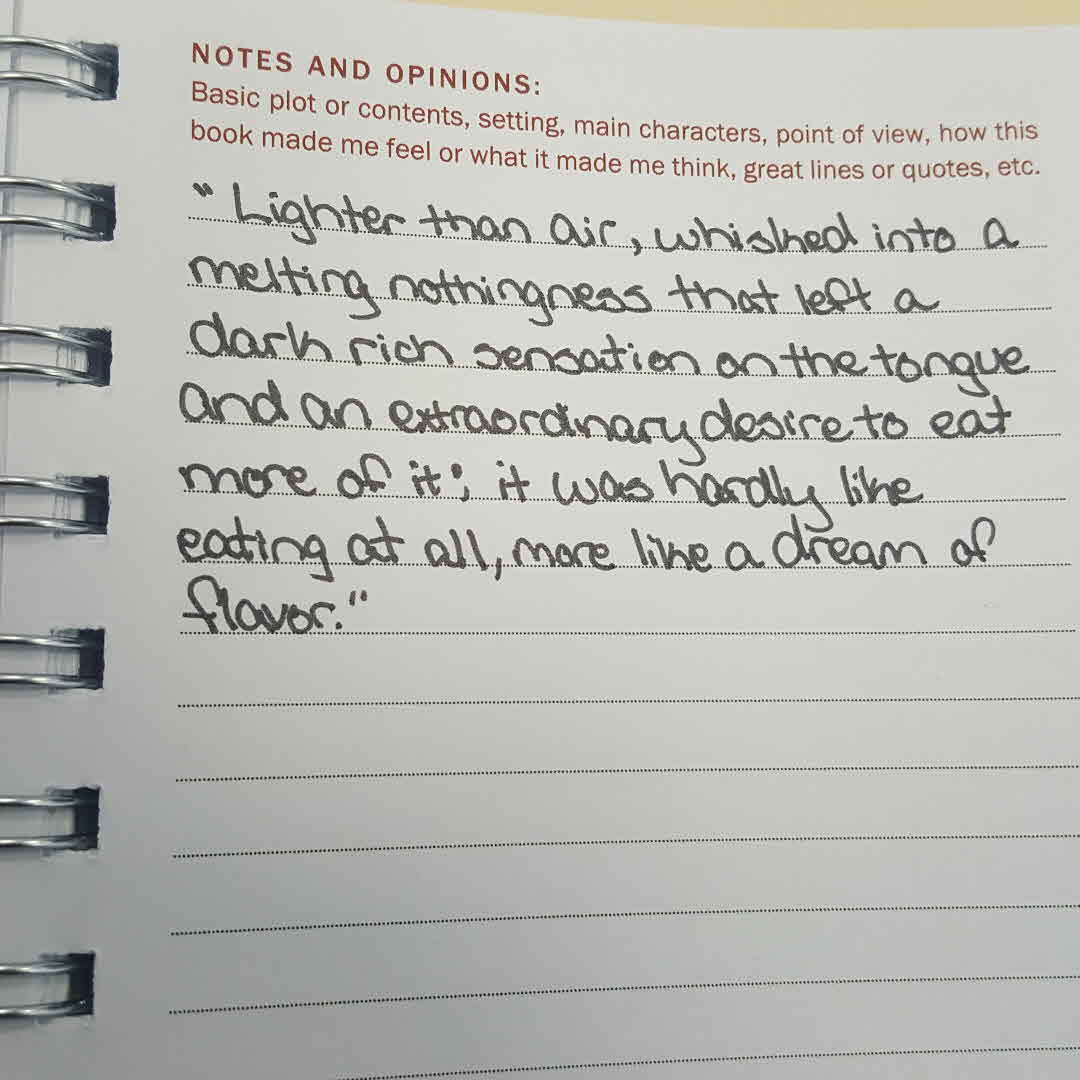 NOTES AND OPINIONS:
Basic plot or contents, setting, main characters, point of view, how this
book made me feel or what it made me think, great lines or quotes, etc.
"Lighter than air, whisked into a
melting nothingness that left a
dark rich sensation on the tongue
and an extraordinary desire to eat
more of it; it was hardly like
eating at all, more like a dream of
flavor."